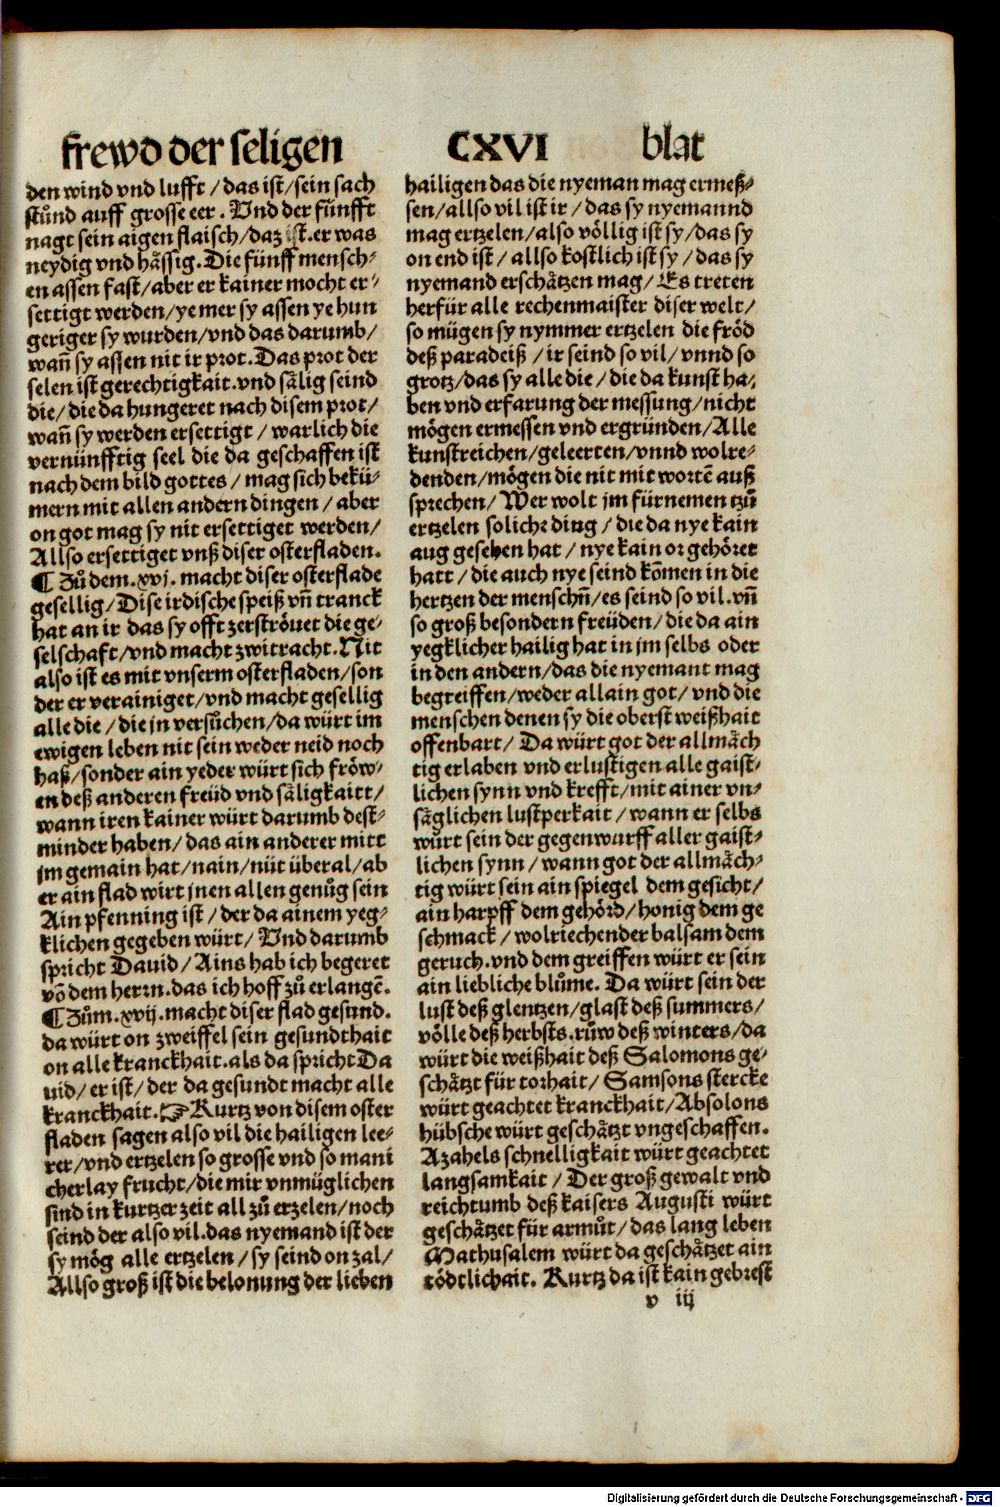 frewd der seligen CXVI blat
den wind vnd lufft / das ist / sein sach
stůnd auff grosse eer . Vnd der fünfft
nagt sein aigen flaisch / daz ist . er was
neydig vnd hässig . Die fünff mensch⸗
en assen fast / aber er kainer mocht er⸗
settigt werden / ye mer sy assen ye hun
geriger sy wurden / vnd das darumb /
wañ sy assen nit ir prot . Das prot der
selen ist gerechtigkait . vnd sälig seind
die / die da hungeret nach disem prot /
wañ sy werden ersettigt / warlich die
vernünfftig seel die da geschaffen ist
nach dem bild gottes / mag sich bekü⸗
mern mit allen andern dingen / aber
on got mag sy nit ersettiget werden /
Allso ersettiget vnß diser osterfladen .
¶ Zů dem . xvj . macht diser osterflade
gesellig / Dise irdische speiß vñ tranck
hat an ir das sy offt zerströuet die ge⸗
selschaft / vnd macht zwitracht . Nit
also ist es mit vnserm osterfladen / son
der er verainiget / vnd macht gesellig
alle die / die jn versůchen / da würt im
ewigen leben nit sein weder neid noch
haß / sonder ain yeder würt sich fröw⸗
en deß anderen freüd vnd säligkaitt /
wann iren kainer würt darumb dest⸗
minder haben / das ain anderer mitt
jm gemain hat / nain / nüt überal / ab
er ain flad wirt jnen allen genůg sein
Ain pfenning ist / der da ainem yeg⸗
klichen gegeben würt / Vnd darumb
spricht Dauid / Ains hab ich begeret
võ dem herrn . das ich hoff zů erlangẽ .
¶ Zům . xvij . macht diser flad gesund .
da würt on zweiffel sein gesundthait
on alle kranckhait . als da spricht Da
uid / er ist / der da gesundt macht alle
kranckhait . ☞ Kurtz von disem oster
fladen sagen also vil die hailigen lee⸗
rer / vnd ertzelen so grosse vnd so mani
cherlay frucht / die mir vnmüglichen
sind in kurtzer zeit all zů erzelen / noch
seind der also vil . das nyemand ist der
sy mög alle ertzelen / sy seind on zal /
Allso groß ist die belonung der lieben
hailigen das die nyeman mag ermeß⸗
sen / allso vil ist ir / das sy nyemannd
mag ertzelen / also völlig ist sy / das sy
on end ist / allso kostlich ist sy / das sy
nyemand erschätzen mag / Es treten
herfür alle rechenmaister diser welt /
so mügen sy nymmer ertzelen die fröd
deß paradeiß / ir seind so vil / vnnd so
grotz / das sy alle die / die da kunst ha⸗
ben vnd erfarung der messung / nicht
mögen ermessen vnd ergründen / Alle
kunstreichen / geleerten / vnnd wolre⸗
denden / mögen die nit mit wortẽ auß
sprechen / Wer wolt jm fürnemen tzů
ertzelen soliche ding / die da nye kain
aug gesehen hat / nye kain or gehöret
hatt / die auch nye seind kõmen in die
hertzen der menschñ / es seind so vil . vñ
so groß besondern freüden / die da ain
yegklicher hailig hat in jm selbs oder
in den andern / das die nyemant mag
begreiffen / weder allain got / vnd die
menschen denen sy die oberst weißhait
offenbart / Da würt got der allmäch
tig erlaben vnd erlustigen alle gaist⸗
lichen synn vnd krefft / mit ainer vn⸗
säglichen lustperkait / wann er selbs
würt sein der gegenwurff aller gaist⸗
lichen synn / wann got der allmäch⸗
tig würt sein ain spiegel dem gesicht /
ain harpff dem gehörd / honig dem ge
schmack / wolriechender balsam dem
geruch . vnd dem greiffen würt er sein
ain liebliche blůme . Da würt sein der
lust deß glentzen / glast deß summers /
völle deß herbsts . růw deß winters / da
würt die weißhait deß Salomons ge⸗
schätzt für torhait / Samsons stercke
würt geachtet kranckhait / Absolons
hübsche würt geschätzt vngeschaffen .
Azahels schnelligkait würt geachtet
langsamkait / Der groß gewalt vnd
reichtumb deß kaisers Augusti würt
geschätzet für armůt / das lang leben
Mathusalem würt da geschätzet ain
tödtlichait . Kurtz da ist kain gebrest
v iij
Digitalisierung gefördert durch die Deutsche Forschungsgemeinschaft - DFG